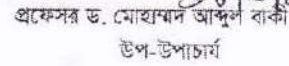 প্রফেসর ড. মোহাম্মদ আব্দুল বাকী
উপ-উপাচার্য